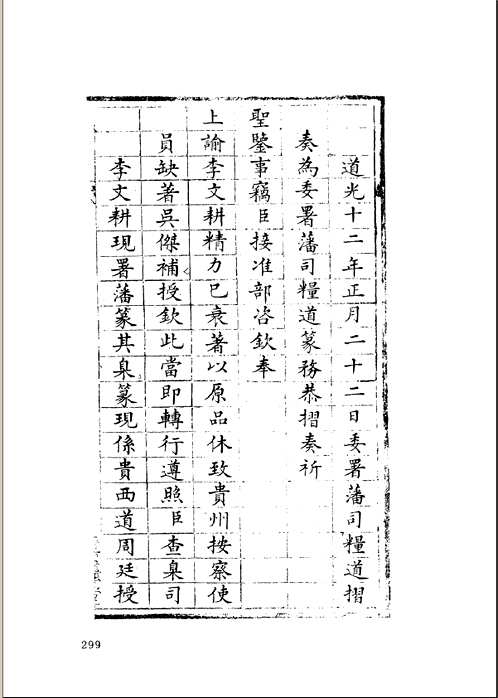 道光十二年正月二十二日委署藩司糧道摺
奏為委署藩司糧道篆務恭摺奏祈
聖鑒事竊臣接准部咨欽奉
上諭李文耕精力已衰著以原品休致貴州按察使
員缺著吳傑補授欽此當即轉行遵照臣查臬司
李文耕現署藩篆其臬篆現係貴西道周廷授
299